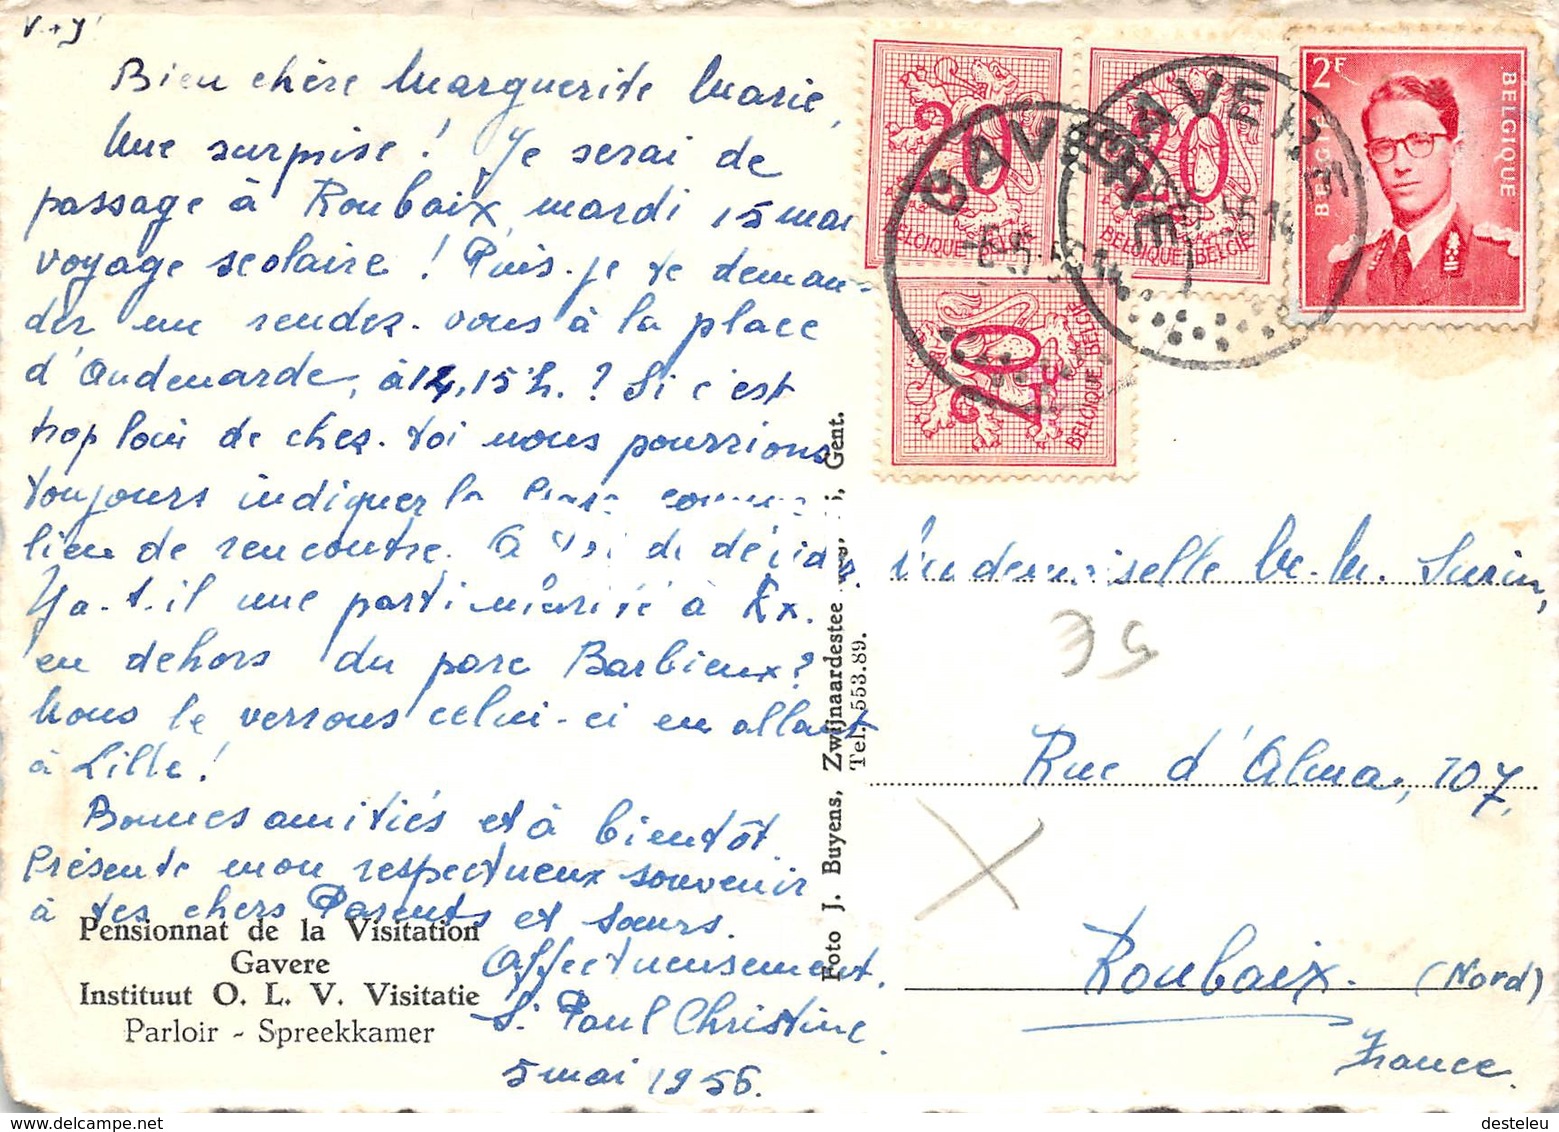 V + J
Bien chère Marguerite Marie,
Une surprise ! Je serai de
passage à Roubaix, mardi 15 mai
voyage scolaire ! Puis-je te deman-
der un rendez-vous à la place
d'Audenarde, à 14,15 h. ? Si c'est
trop loin de chez-toi nous pourrions
toujours indiquer la
lieu de rencontre. A toi de décider.
Y a-t-il une particularité à Rx.
en dehors du parc Barbieux ?
Nous le verrons celui-ci en allant
à Lille !
Bonnes amitiés et à bientôt.
Présente mon respectueux souvenir
à tes chers Parents et sœurs.
Affectueusement.
S. Paul Christine.
5 mai 1956.
Pensionnat de la Visitation
Gavere
Instituut O. L. V. Visitatie
Parloir - Spreekkamer
Foto J. Buyens, Zwijnaardestee Gent.
Tel. 553.89.
20
BELGIQUE BELGIË
20
BELGIQUE BELGIË
20
BELGIQUE BELGIË
2F
BELGIË
BELGIQUE
GAVERE
GAVERE
Mademoiselle M. M. Surin,
35
Rue d'Alma, 107,
Roubaix. (Nord)
France.
desteleu